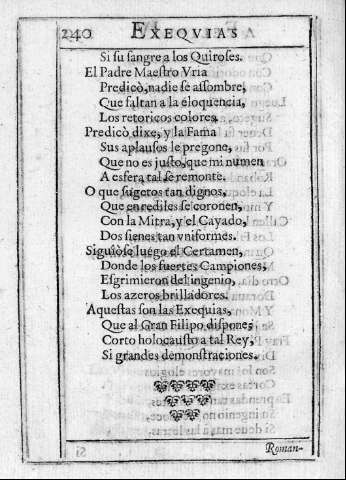 240 EXEQVIAS
Si su sangre a los Quiroses.
El Padre Maestro Vria
Predicò, nadie se assombre,
Que faltan a la eloquencia,
Los retoricos colores.
Predicò dixe, y la Fama
Sus aplausos le pregone,
Que no es justo, que mi numen
A esfera tal se remonte.
O que sugetos tan dignos,
Que en rediles se coronen,
Con la Mitra, y el Cayado,
Dos sienes tan vniformes.
Siguiòse luego el Certamen,
Donde los fuertes Campiones,
Esgrimieron del ingenio,
Los azeros brilladores.
Aquestas son las Exequias,
Que al Gran Filipo dispone,
Corto holocausto a tal Rey,
Si grandes demonstraciones.
Roman-